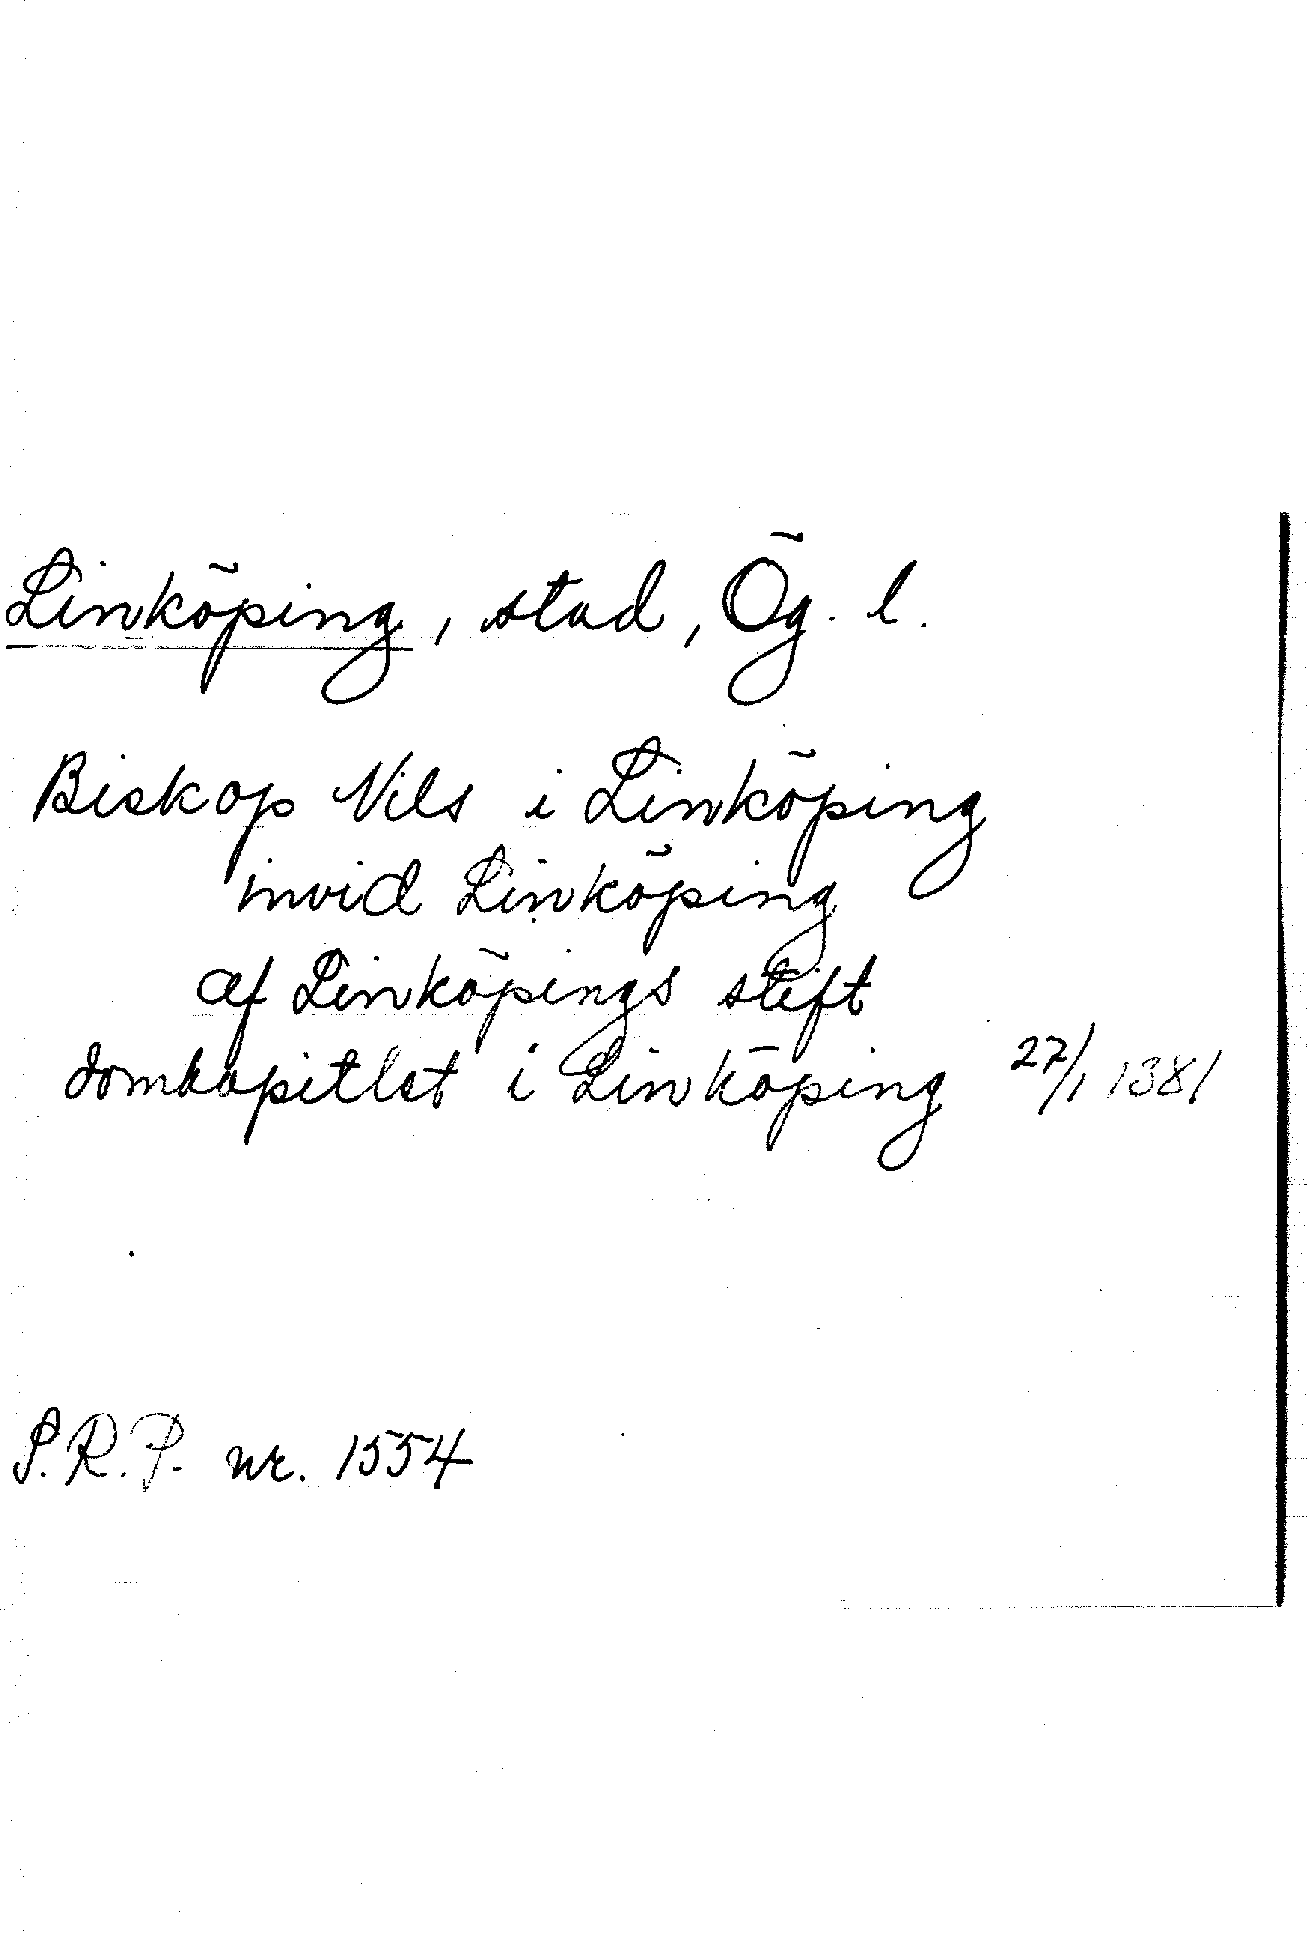 Linköping, stad, Ög. l.
Biskop Nils i Linköping
invid Linköping
af Linköpings stift
domkapitlet i Linköping 27/1 1381
S.R.P. nr. 1554